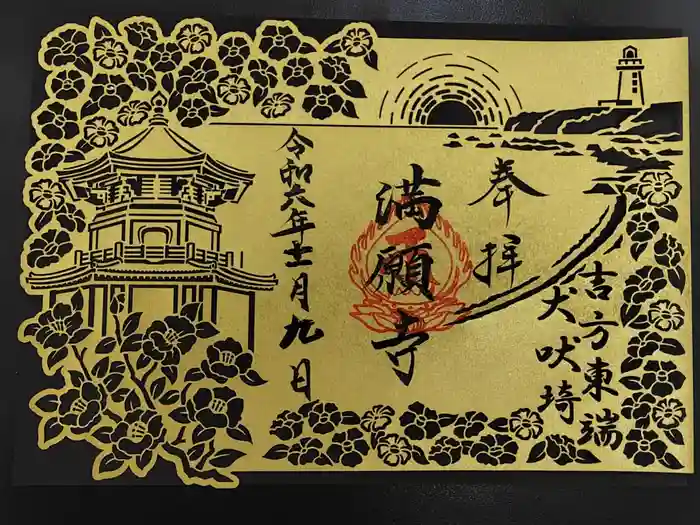 奉拝
吉方東端
犬吠埼
満願寺
令和六年十一月九日